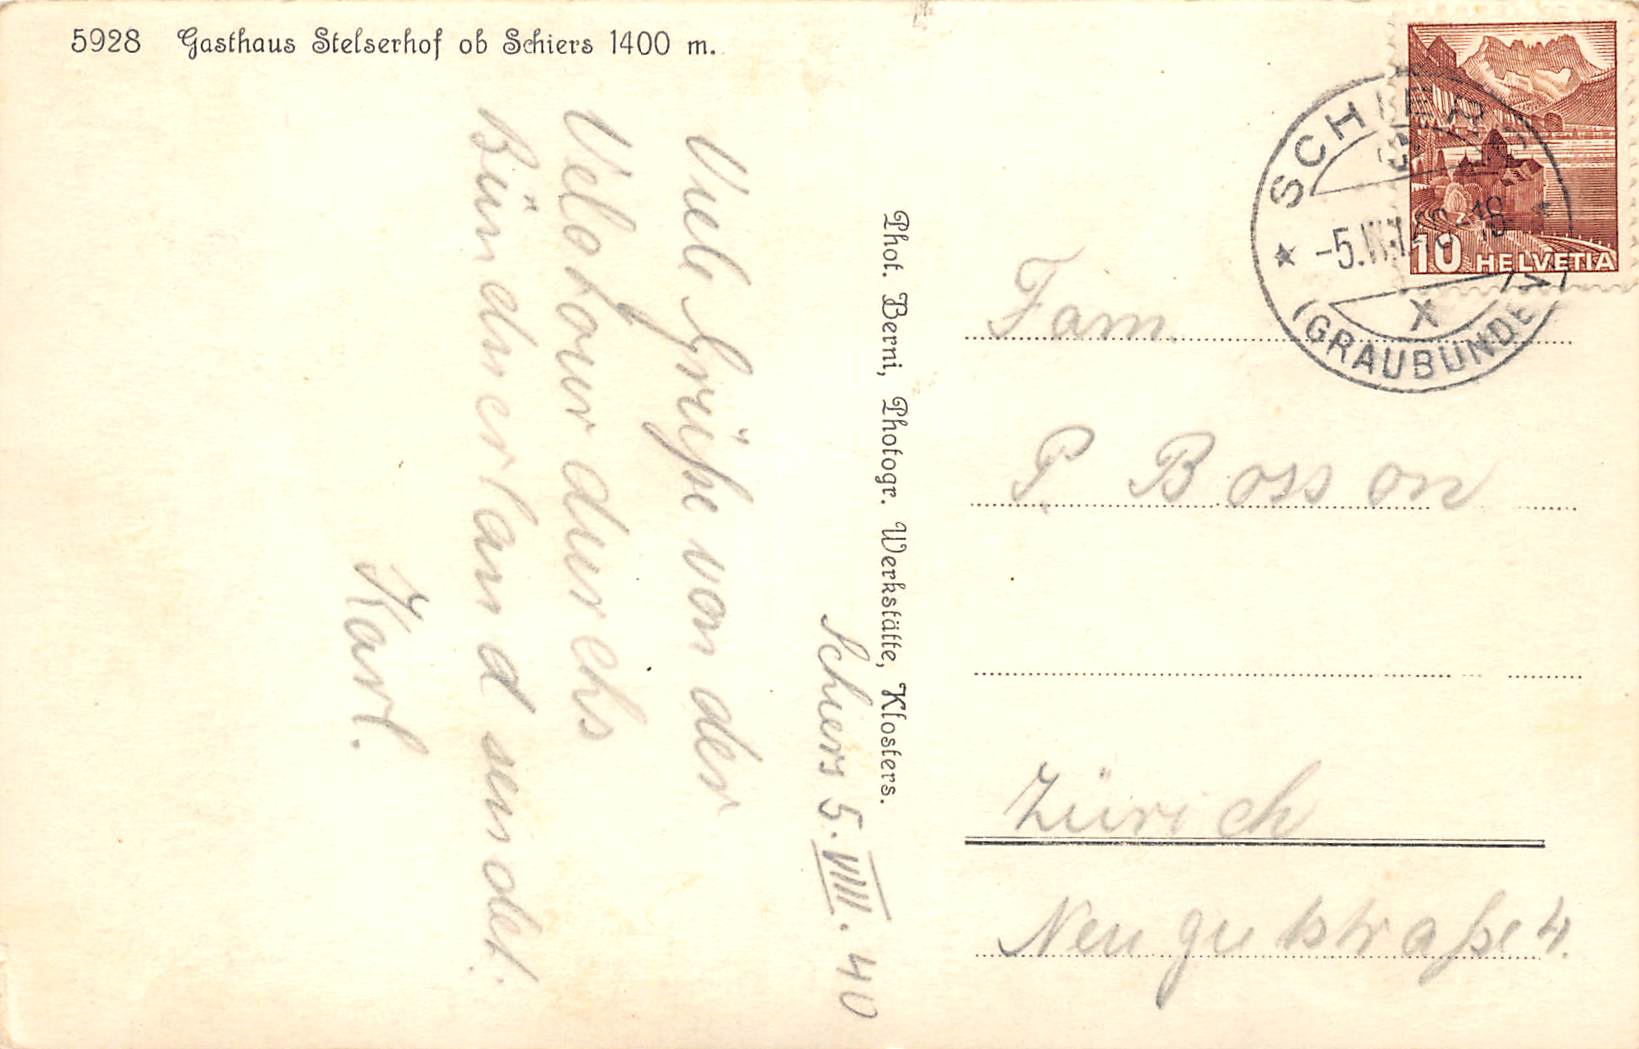 5928 Gasthaus Stelserhof ob Schiers 1400 m.
Schiers 5. VIII. 40
Viele Grüße von der
Velotour durchs
Bündnerland sendet.
Karl.
Phot. Berni, Photogr. Werkstätte, Klosters.
SCHIERS
-5.VIII.40-18
X
(GRAUBÜNDEN)
10 HELVETIA
Fam.
P. Bosson
Zürich
Neugutstraße 4.